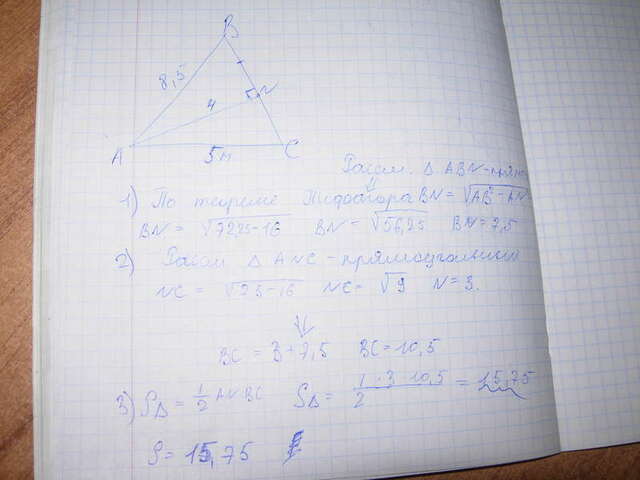 B
8,5
4
N
A
5
C
Рассм. Δ ABN - прям
1) По теореме Пифагора BN = √AB² - AN
BN = √72,25-16 BN = √56,25 BN = 7,5
2) Рассм Δ ANC - прямоугольный
NC = √25-16 NC = √9 N = 3.
⇓
BC = 3+7,5 BC = 10,5
3) S Δ = 1/2 AN·BC S Δ = 1/2 · 3 · 10,5 = 15,75
S = 15,75